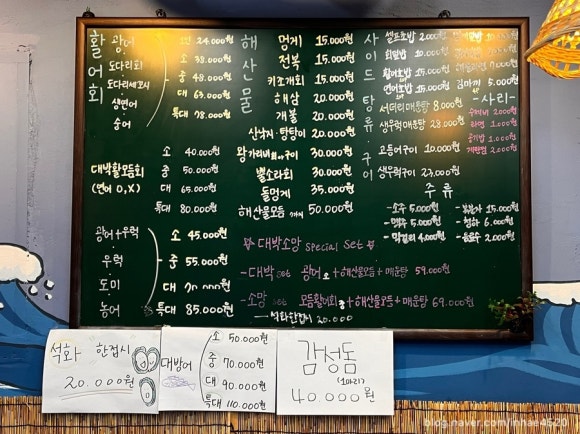 활어회
광어 1인 24.000원
도다리회 소 38.000원
도다리세꼬시 중 48.000원
생연어 대 63.000원
숭어 특대 78.000원
대박활모듬회
(연어 O,X)
소 40.000원
중 50.000원
대 65.000원
특대 80.000원
광어+우럭 소 45.000원
우럭 중 55.000원
도미 대
농어 특대 85.000원
해산물
멍게 15.000원
전복 15.000원
키조개회 15.000원
해삼 20.000원
개불 20.000원
산낙지·탕탕이 20.000원
왕가리비회or구이 30.000원
뿔소라회 30.000원
돌멍게 35.000원
해산물모듬 50.000원
사이드
탕류
구이
셀프초밥 2.000원
회덮밥
활어초밥
연어초밥
김마끼 5.000원
서더리매운탕 8.000원
생우럭매운탕 28.000원
고등어구이 10.000원
생우럭구이 23.000원
-사리-
수제비 2.000원
라면 1.000원
공기밥 1.000원
주류
-소주 5.000원
-맥주 5.000원
-막걸리 4.000원
-복분자 15.000원
-청하 6.000원
-음료수 2.000원
대박소망 special set
-대박 set 광어 소 +해산물모듬+매운탕 59.000원
-소망 set 모듬활어회 중 +해산물모듬+매운탕 69.000원
석화한접시 20.000
석화 한접시
20.000원
대방어
소 50.000원
중 70.000원
대 90.000원
특대 110.000원
감성돔
(1마리)
40.000원
blog.naver.com/inhae4520